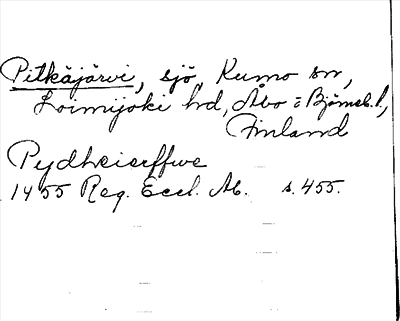 Pitkäjärvi, sjö, Kumo sn,
Loimijoki hd, Åbo = Björneb. l.,
Finland
Pydkeiserffwe
1455 Reg. Eccl. Ab. s. 455.